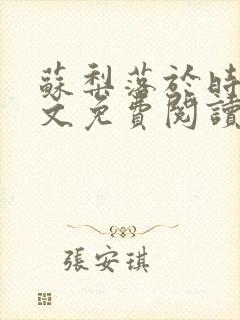 蘇梨落於時
文免費閱讀
張安琪